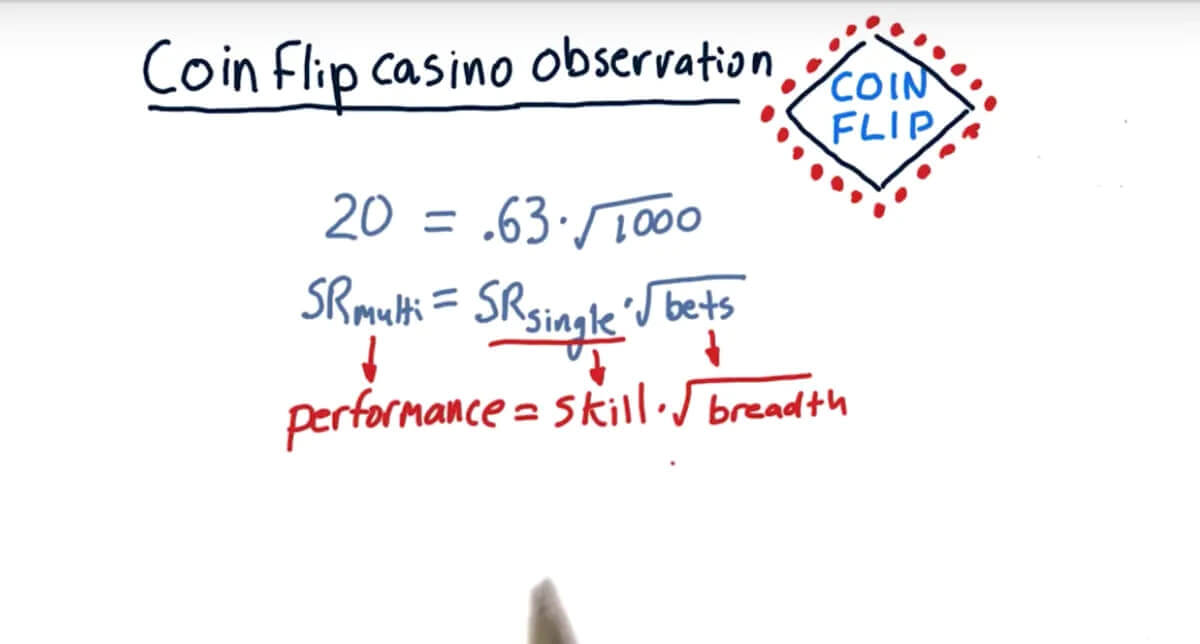 Coin Flip casino observation
COIN
FLIP
20 = .63·√1000
SRmulti = SRsingle·√bets
performance = skill·√breadth